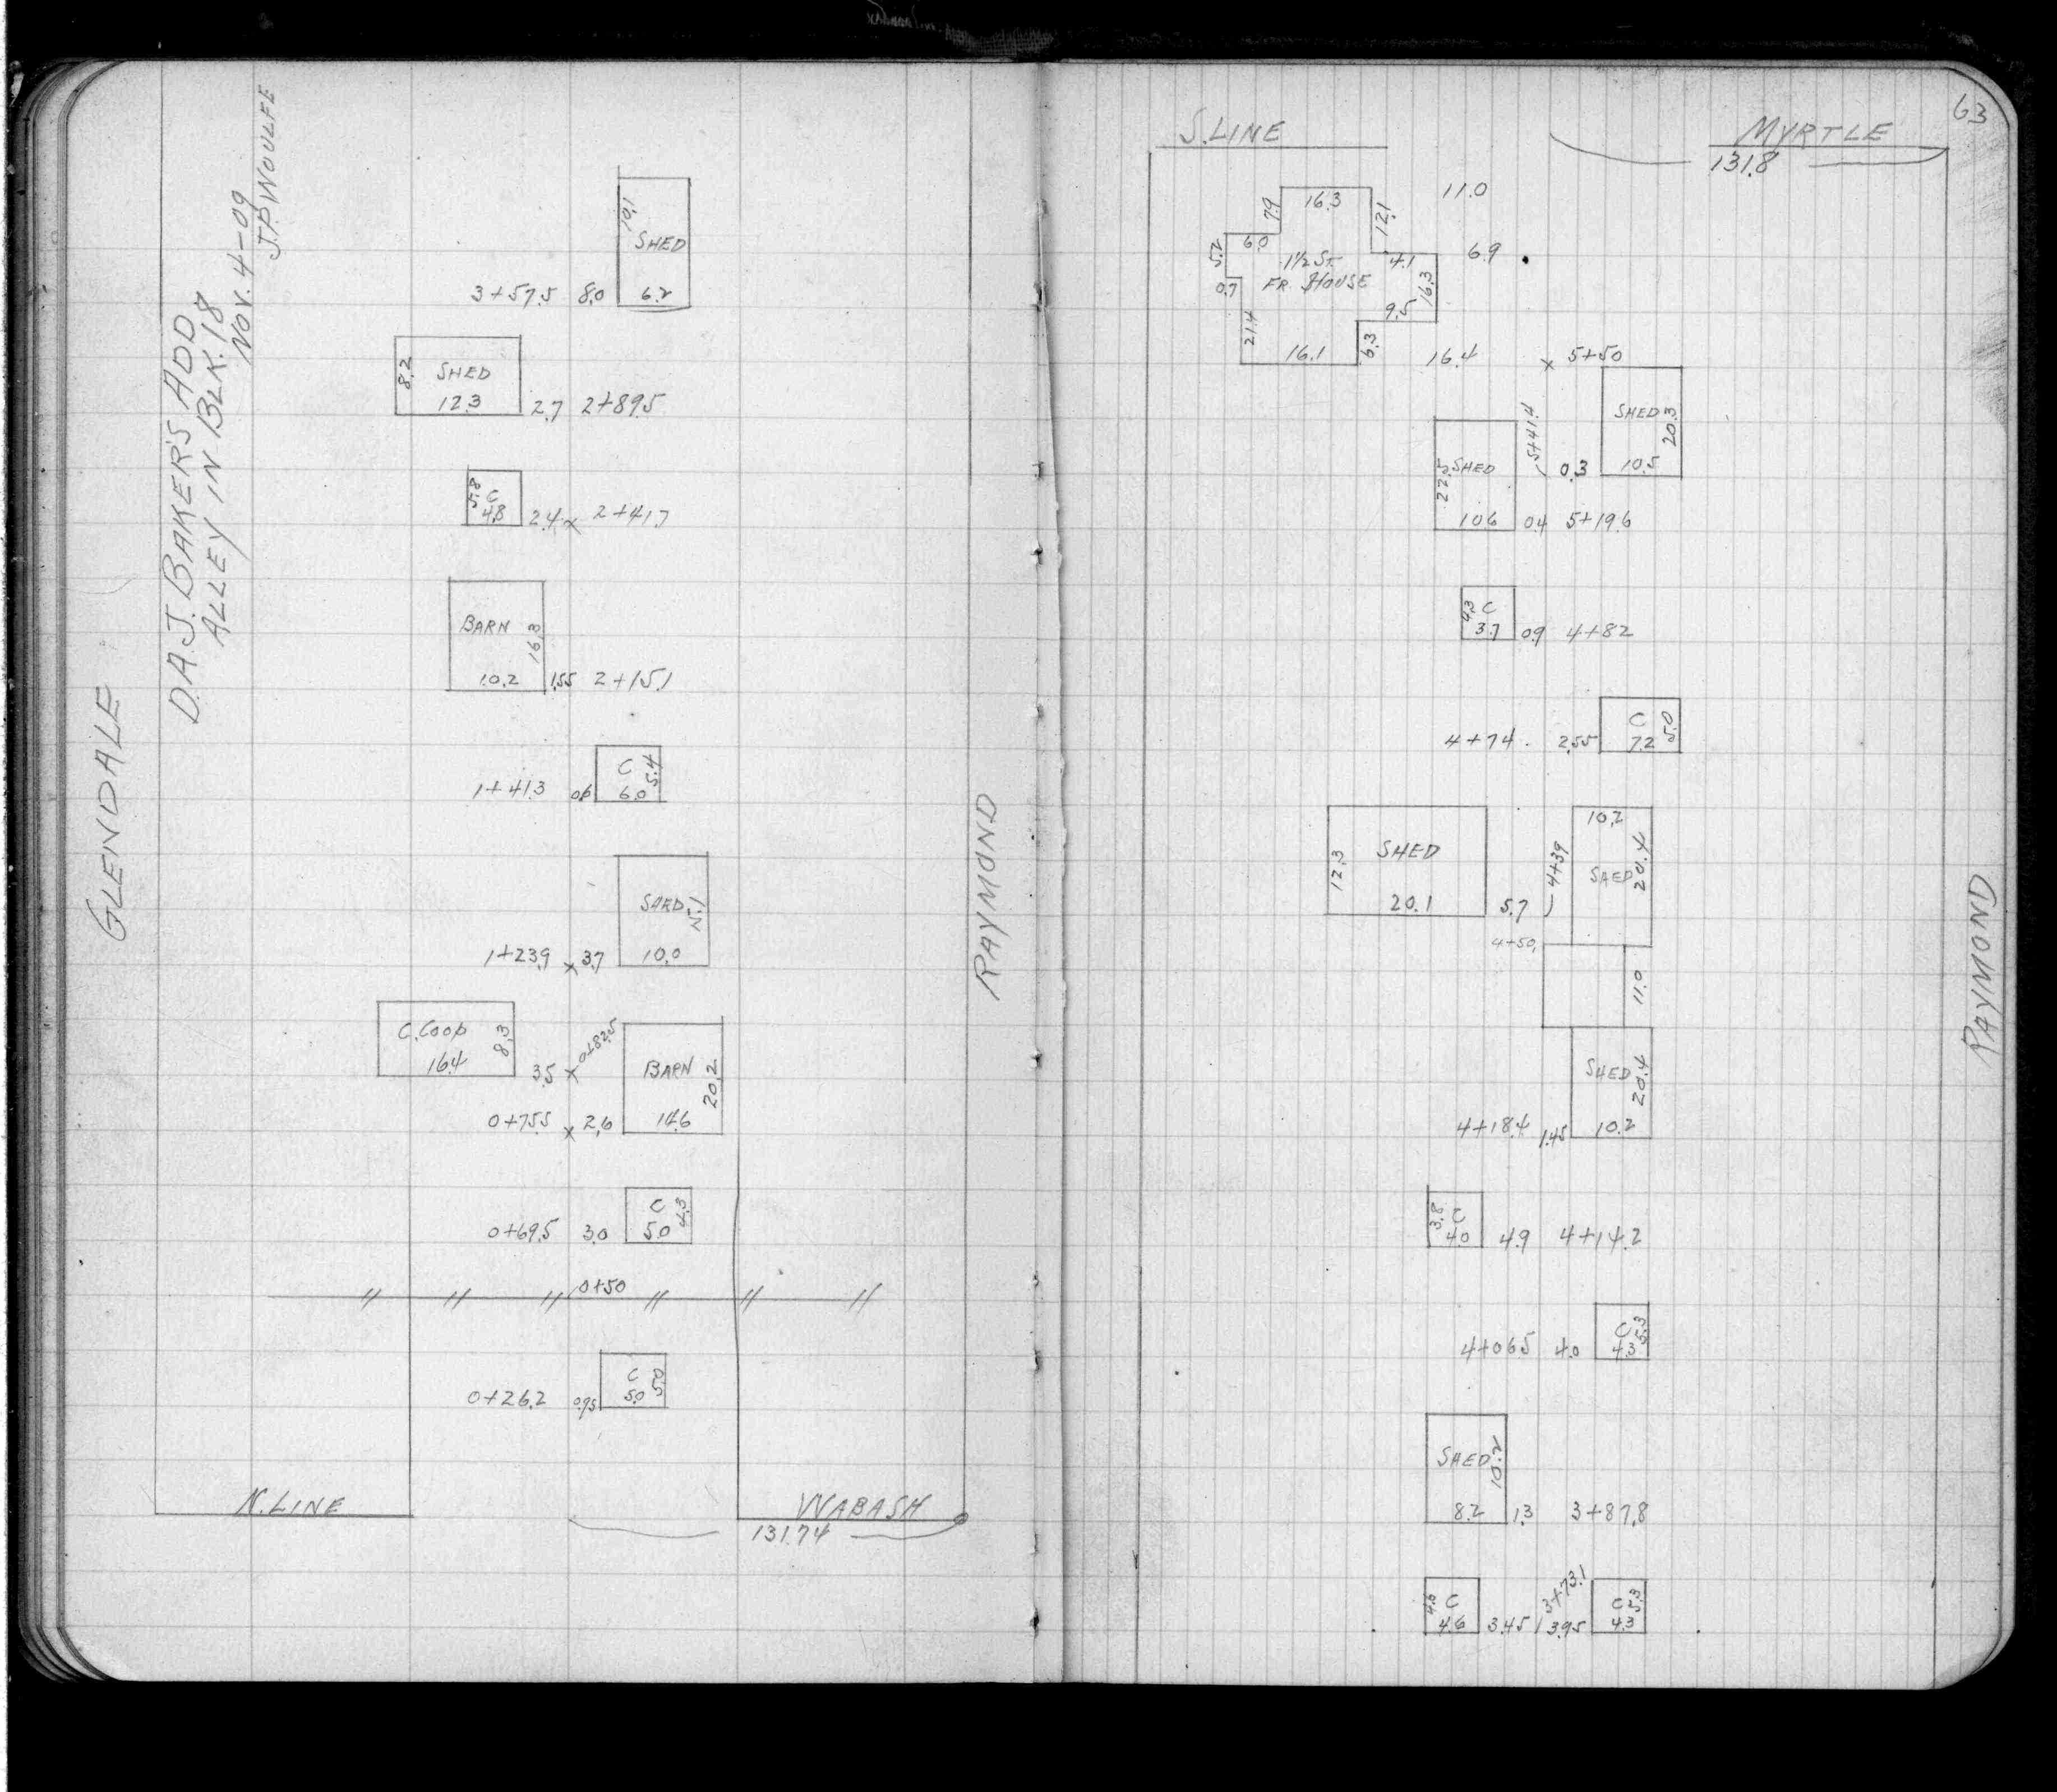 D.A.J. BAKER'S ADD
ALLEY IN BLK. 18
NOV. 4-09
J.P. WOULFE
GLENDALE
10.1
SHED
3+57.5 8.0 6.2
8.2 SHED
12.3 2.7 2+89.5
5.8 C
4.8 2.4 x 2+41.7
BARN 16.3
10.2 1.55 2+15.1
C 5.4
1+41.3 0.6 6.0
SHED
1+23.9 x 3.7 10.0
C. COOP 8.3
16.4 3.5 x 0+82.5
BARN 20.2
0+75.5 x 2.6 14.6
C 4.3
0+69.5 3.0 5.0
0+50
C 5.0
0+26.2 0.95 5.0
N. LINE WABASH
131.74
RAYMOND
63
S. LINE MYRTLE
131.8
7.9 16.3 12.1 11.0
5.2 6.0 4.1 6.9
1½ ST.
FR. HOUSE
0.7 16.3
21.4 9.5
16.1 6.3 16.4 x 5+50
SHED 20.3
5+41.4 0.3 10.5
22.5 SHED
10.6 0.4 5+19.6
4.3 C
3.7 0.9 4+82
C 5.0
4+74 2.55 7.2
12.3 SHED
20.1 5.7 4+39
10.2
SHED 20.4
4+50
11.0
SHED 20.4
4+18.4 1.45 10.2
3.8 C
4.0 4.9 4+14.2
C 5.3
4+06.5 4.0 4.3
SHED 10.2
8.2 1.3 3+87.8
4.6 C
4.6 3.45 3+73.1 3.95
C 5.3
4.3
RAYMOND